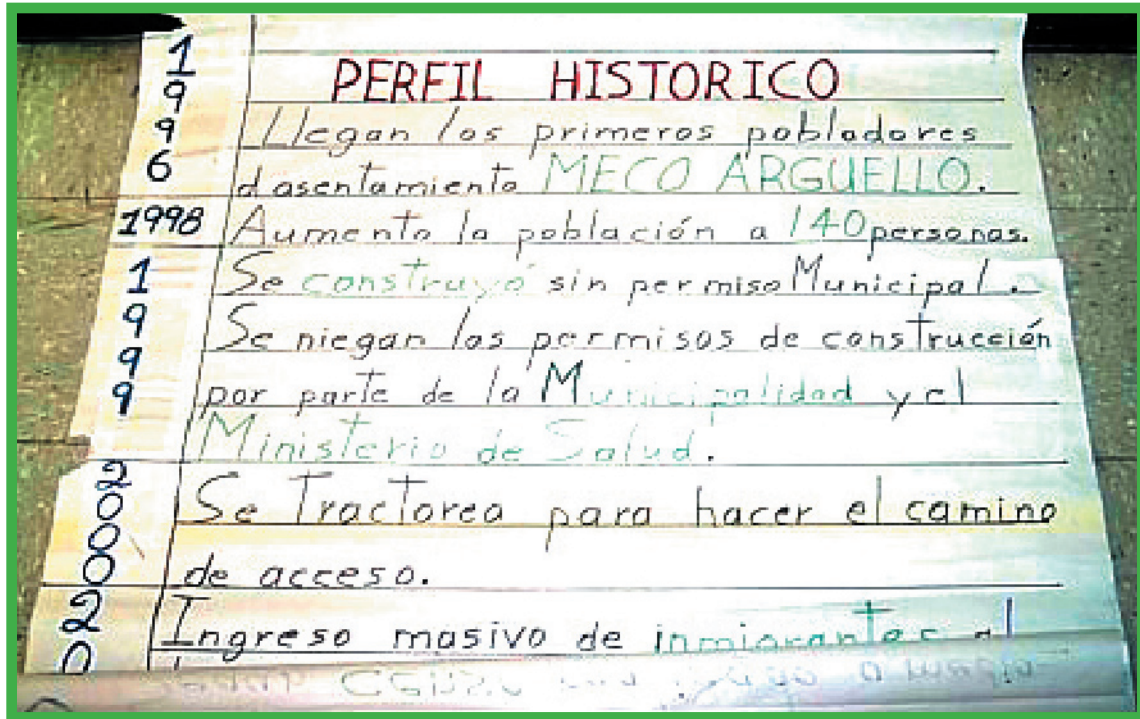 PERFIL HISTORICO
1996 Llegan los primeros pobladores
d asentamiento MECO ARGUELLO.
1998 Aumento la población a 140 personas.
1999 Se construyó sin permiso Municipal.
Se niegan los permisos de construcción
por parte de la Municipalidad y el
Ministerio de Salud.
2000 Se Tractorea para hacer el camino
de acceso.
20 Ingreso masivo de inmigrantes al